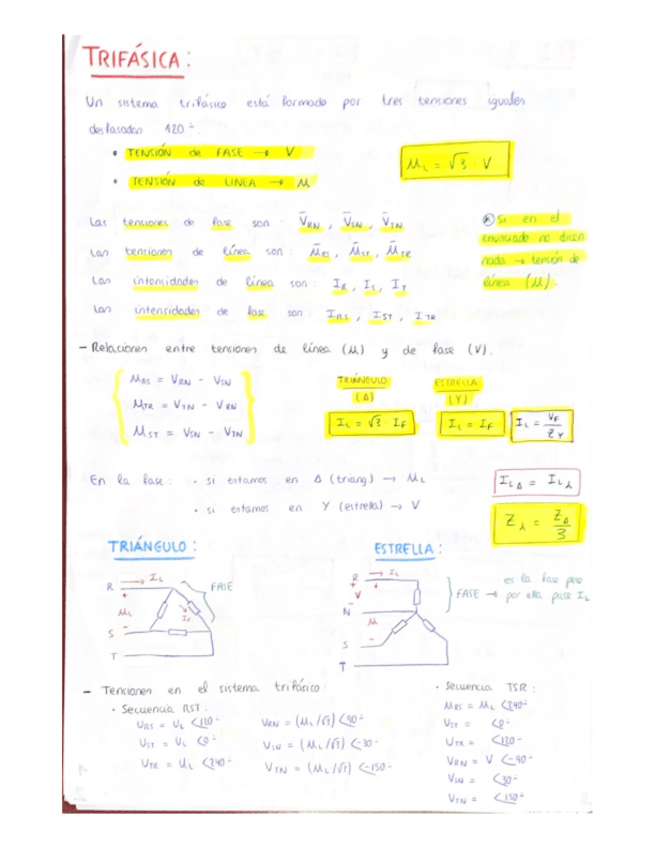 TRIFÁSICA:
Un sistema trifásico está formado por tres tensiones iguales
desfasadas 120º.
• TENSIÓN de FASE → V
• TENSIÓN de LINEA → U
U_L = √3 · V
Las tensiones de fase son: V̄_RN, V̄_SN, V̄_TN
Las tensiones de línea son: Ū_RS, Ū_ST, Ū_TR
Las intensidades de línea son: I_R, I_S, I_T
Las intensidades de fase son: I_RS, I_ST, I_TR
Si en el
enunciado no dicen
nada → tensión de
línea (U).
- Relaciones entre tensiones de línea (U) y de fase (V).
U_RS = V_RN - V_SN
U_TR = V_TN - V_RN
U_ST = V_SN - V_TN
TRIÁNGULO
(Δ)
I_L = √3 · I_F
ESTRELLA
(Y)
I_L = I_F
I_L = V_F / Z_Y
En la fase: · si estamos en Δ (triang.) → U_L
· si estamos en Y (estrella) → V
I_LΔ = I_L⅄
Z_⅄ = Z_Δ / 3
TRIÁNGULO:
R
+
→ I_L
U_L
I_F
FASE
-
S
T
ESTRELLA:
R
→ I_L
+
V
-
N
U
S
-
T
FASE → es la fase pero
por ella pasa I_L
- Tensiones en el sistema trifásico:
· Secuencia RST:
U_RS = U_L <120º
U_ST = U_L <0º
U_TR = U_L <240º
V_RN = (U_L/√3) <90º
V_SN = (U_L/√3) <-30º
V_TN = (U_L/√3) <-150º
· Secuencia TSR:
U_RS = U_L <240º
U_ST = <0º
U_TR = <120º
V_RN = V <-90º
V_SN = <30º
V_TN = <150º